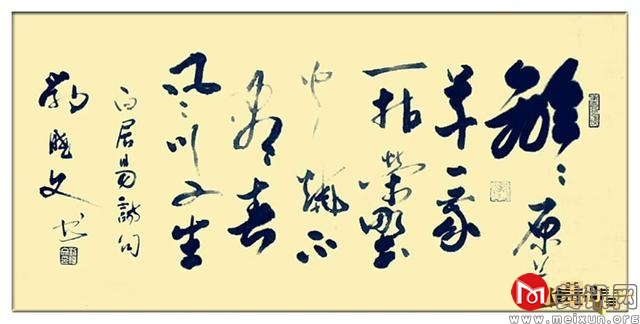 離〻原上
草一歲
一枯榮野
火燒不
盡春
風吹又生
白居易詩句
文书
M
www.meixun.org